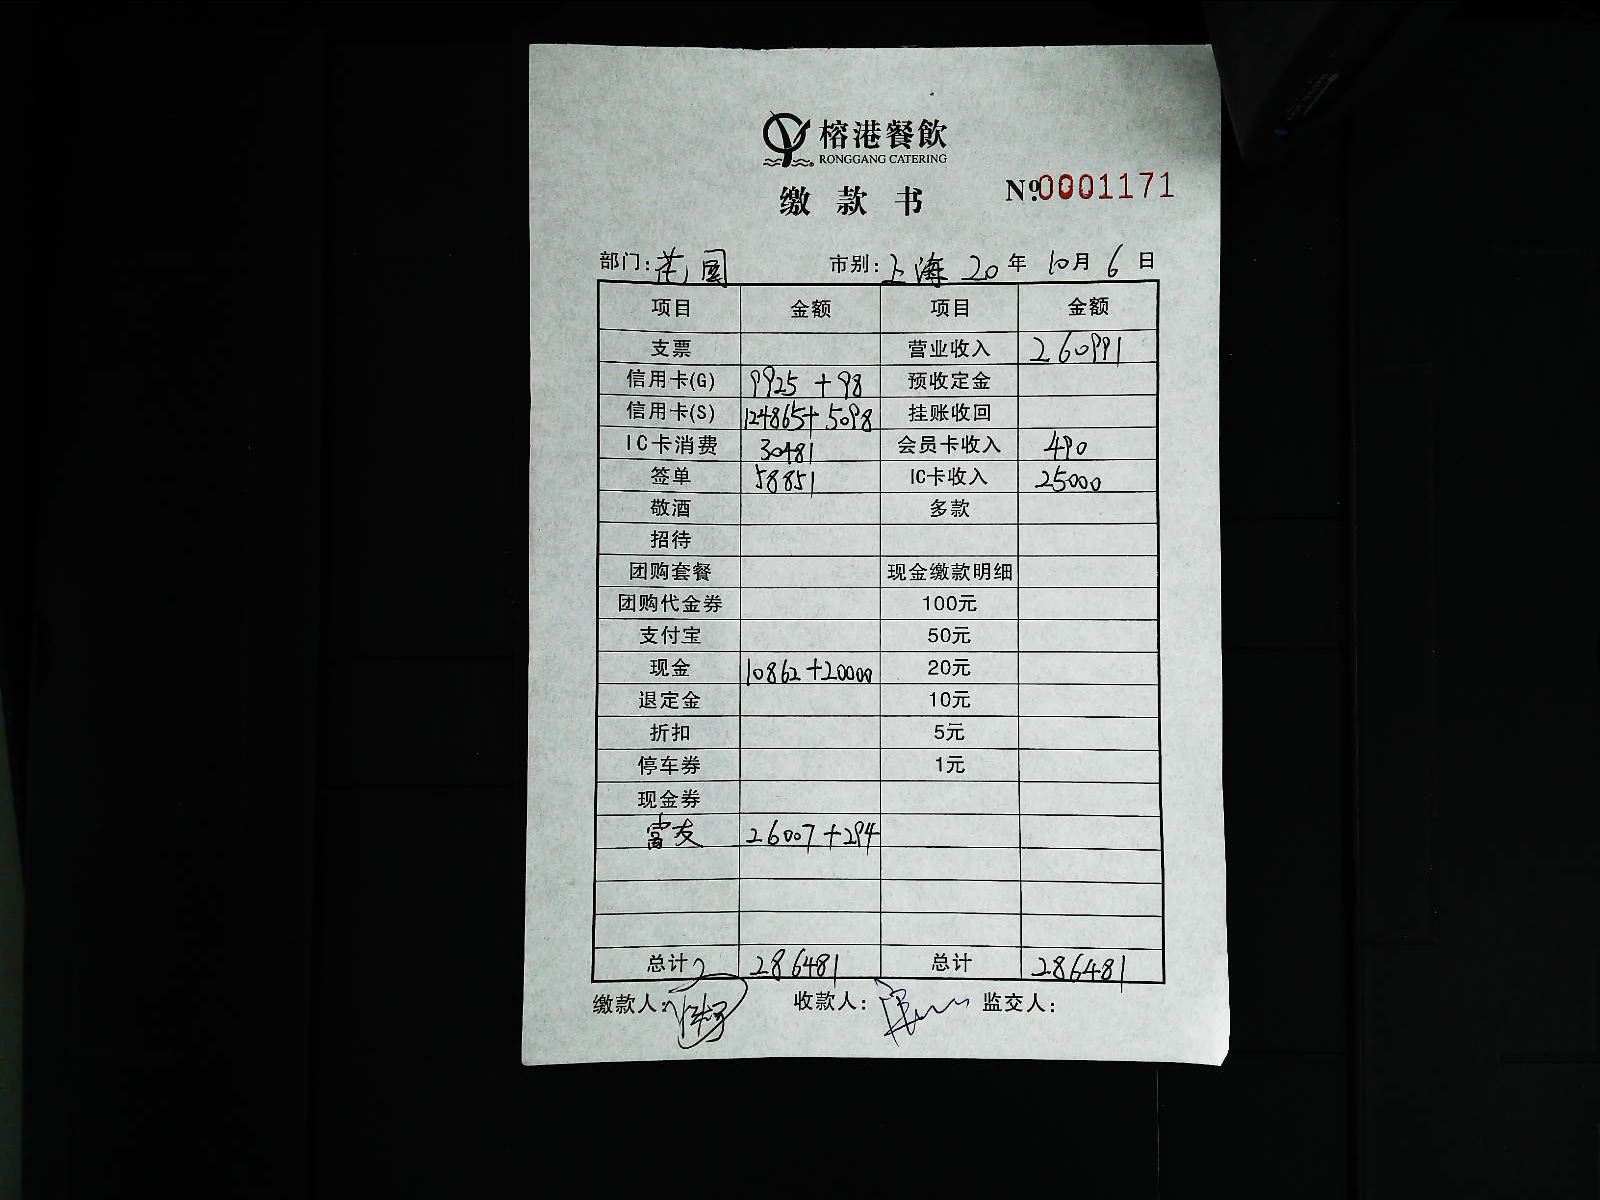 榕港餐飲
RONGGANG CATERING
缴款书 Nº0001171
部门:花园 市别:上海 20年10月6日
项目 金额 项目 金额
支票 营业收入 260991
信用卡(G) 9925+98 预收定金
信用卡(S) 124865+5098 挂账收回
IC卡消费 30481 会员卡收入 490
签单 58851 IC卡收入 25000
敬酒 多款
招待
团购套餐 现金缴款明细
团购代金券 100元
支付宝 50元
现金 10862+20000 20元
退定金 10元
折扣 5元
停车券 1元
现金券
富友 26007+294
总计 286481 总计 286481
缴款人: 收款人: 监交人: